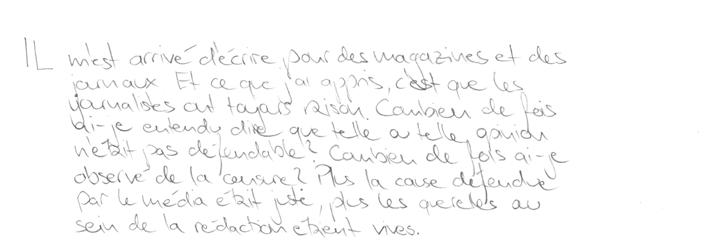 IL m'est arrivé d'écrire pour des magazines et des
journaux Et ce que j'ai appris, c'est que les
journalistes ont toujours raison. Combien de fois
ai-je entendu dire que telle ou telle opinion
n'était pas défendable? Combien de fois ai-je
observé de la censure? Plus la cause défendue
par le média était juste, plus les querelles au
sein de la rédaction étaient vives.